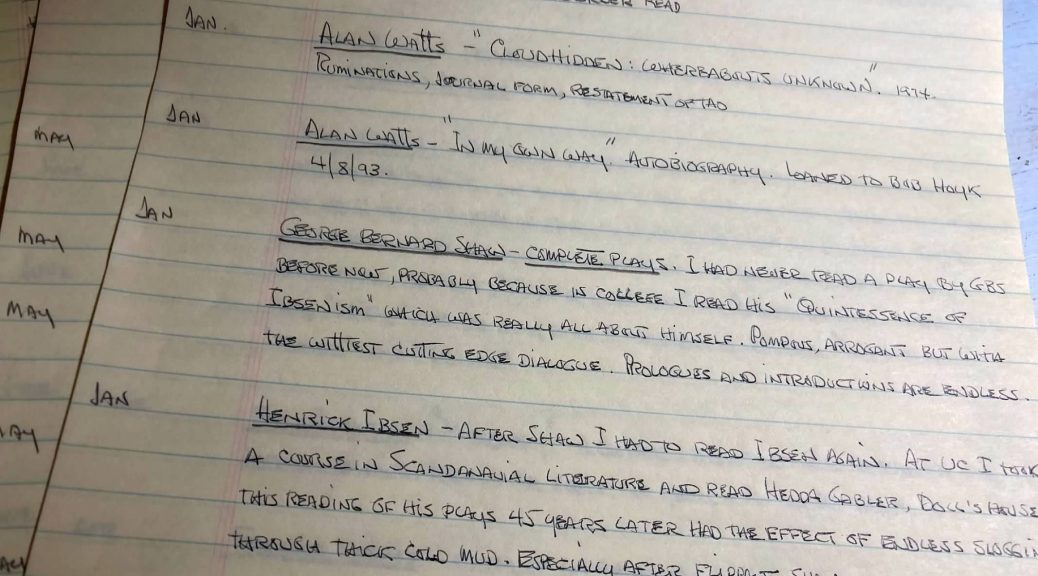 READ
JAN.
ALAN WATTS - "CLOUDHIDDEN: WHEREABOUTS UNKNOWN". 1974.
RUMINATIONS, JOURNAL FORM, RESTATEMENT OF TAO
JAN
MAY
ALAN WATTS - "IN MY OWN WAY" AUTOBIOGRAPHY. LOANED TO BOB HOYK
4/8/93.
JAN
MAY
GEORGE BERNARD SHAW - COMPLETE PLAYS. I HAD NEVER READ A PLAY BY GBS
BEFORE NOW, PROBABLY BECAUSE IN COLLEGE I READ HIS "QUINTESSENCE OF
MAY
IBSENISM" WHICH WAS REALLY ALL ABOUT HIMSELF. POMPOUS, ARROGANT BUT WITH
THE WITTIEST CUTTING EDGE DIALOGUE. PROLOGUES AND INTRODUCTIONS ARE ENDLESS.
JAN
HENRICK IBSEN - AFTER SHAW I HAD TO READ IBSEN AGAIN. AT UC I TOOK
A COURSE IN SCANDANAVIAL LITERATURE AND READ HEDDA GABLER, DOLL'S HOUSE
THIS READING OF HIS PLAYS 45 YEARS LATER HAD THE EFFECT OF ENDLESS
THROUGH THICK COLD MUD. ESPECIALLY AFTER